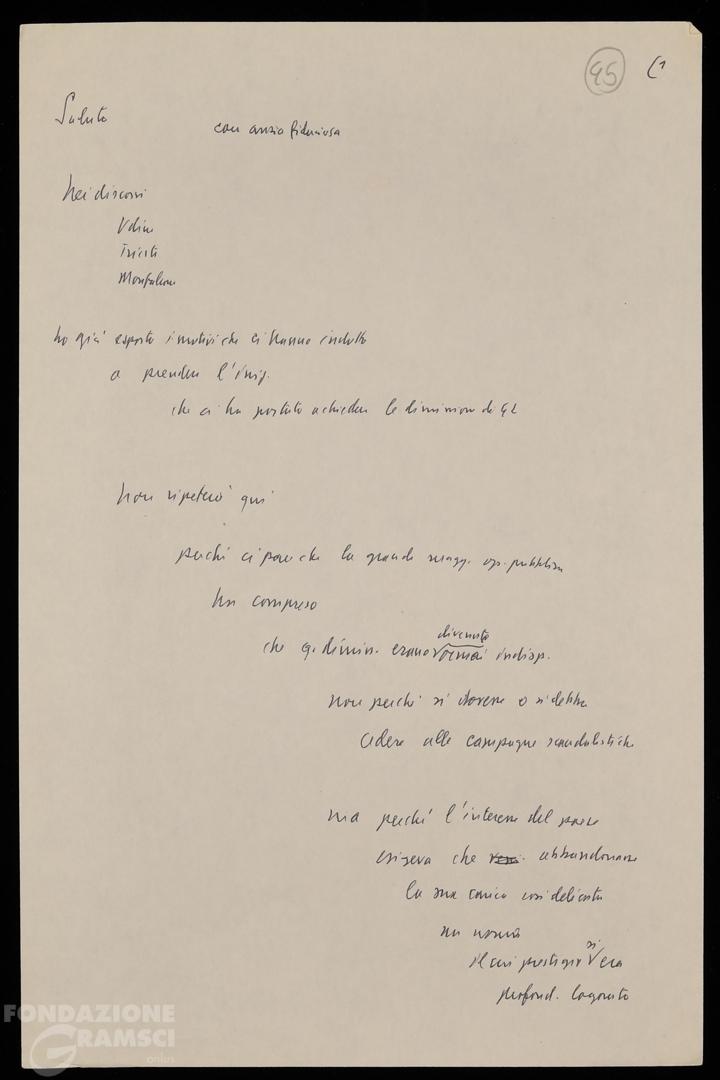 95 (1
Saluto con ansia fiduciosa
Nei discorsi
Udine
Trieste
Monfalcone
ho già esposto i motivi che ci hanno indotto
a prendere l'iniz.
che ci ha portato a chiedere le dimissioni di GL
Non ripeterò qui
perché ci pare che la grande magg. op. pubblica
ha compreso
divenute
che q. dimiss. erano ormai indisp.
non perché si dovesse o si debba
cedere alle campagne scandalistiche
ma perché l'interesse del paese
esigeva che abbandonasse
la sua carica così delicata
un uomo
si
il cui prestigio era
profond. logorato
FONDAZIONE
GRAMSCI
onlus